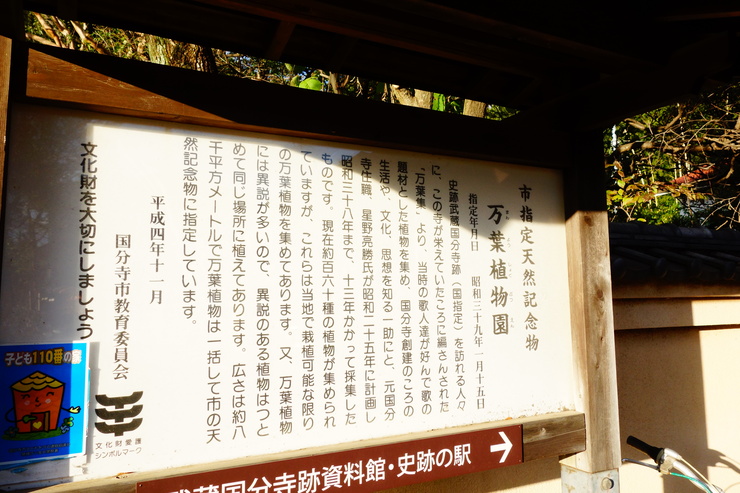 市指定天然記念物
万葉植物園
まんようしょくぶつえん
指定年月日 昭和三十九年一月十五日
史跡武蔵国分寺跡（国指定）を訪れる人々
に、この寺が栄えていたころに編さんされた
“万葉集”より、当時の歌人達が好んで歌の
題材とした植物を集め、国分寺創建のころの
生活や、文化、思想を知る一助にと、元国分
寺住職、星野亮勝氏が昭和二十五年に計画し
昭和三十八年まで、十三年かかって採集した
ものです。現在約百六十種の植物が集められ
ていますが、これらは当地で栽植可能な限り
の万葉植物を集めてあります。又、万葉植物
には異説が多いので、異説のある植物はつと
めて同じ場所に植えてあります。広さは約八
千平方メートルで万葉植物は一括して市の天
然記念物に指定しています。
平成四年十一月
国分寺市教育委員会
文化財を大切にしましょう
子ども110番の家
文化財愛護
シンボルマーク
武蔵国分寺跡資料館・史跡の駅